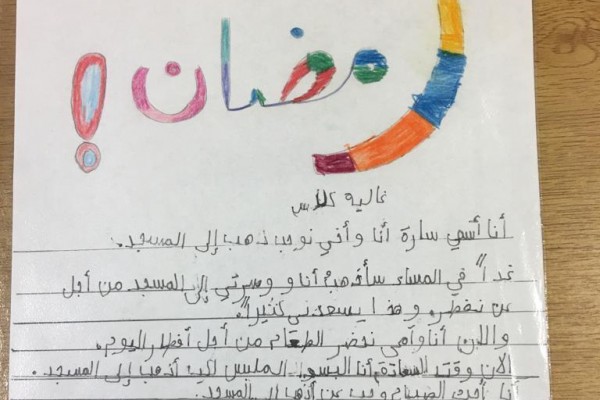 رمضان!
غالية كلاس
أنا أسمي سارة أنا وأخي نوحب نذهب إلى المسجد.
غداً في المساء سأذهب أنا و وسرتي إلى المسجد من أجل
عن نفطر. وهذا يسعدني كثيراً.
واللان أنا وأمي نحضر الطعام من أجل أفطار اليوم.
إلان وقت أنا البسو الملبس لكي أذهب إلى المسجد.
أنا أحب الصيام وحب عن أذهب إلى المسجد.